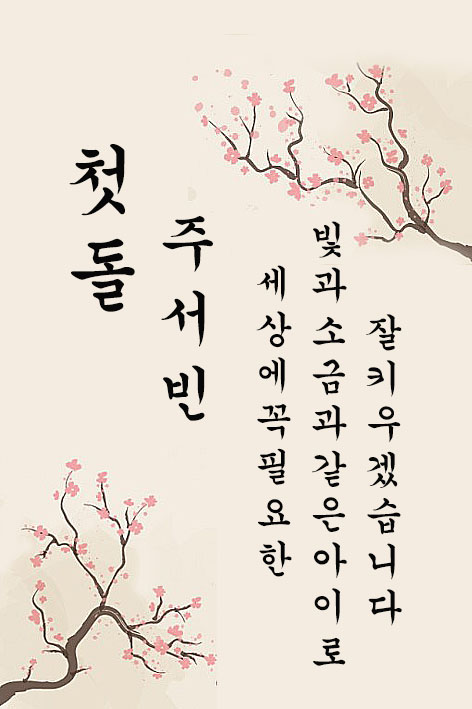 첫돌
주서빈
세상에꼭필요한
빛과소금과같은아이로
잘키우겠습니다